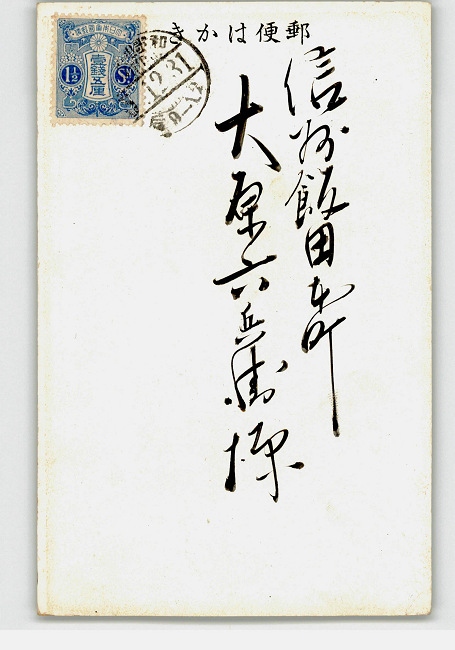 郵便はかき
信州飯田本町
大原六兵衛様
大日本帝國郵便
壹錢五厘
1½ Sn
昭和
12.31